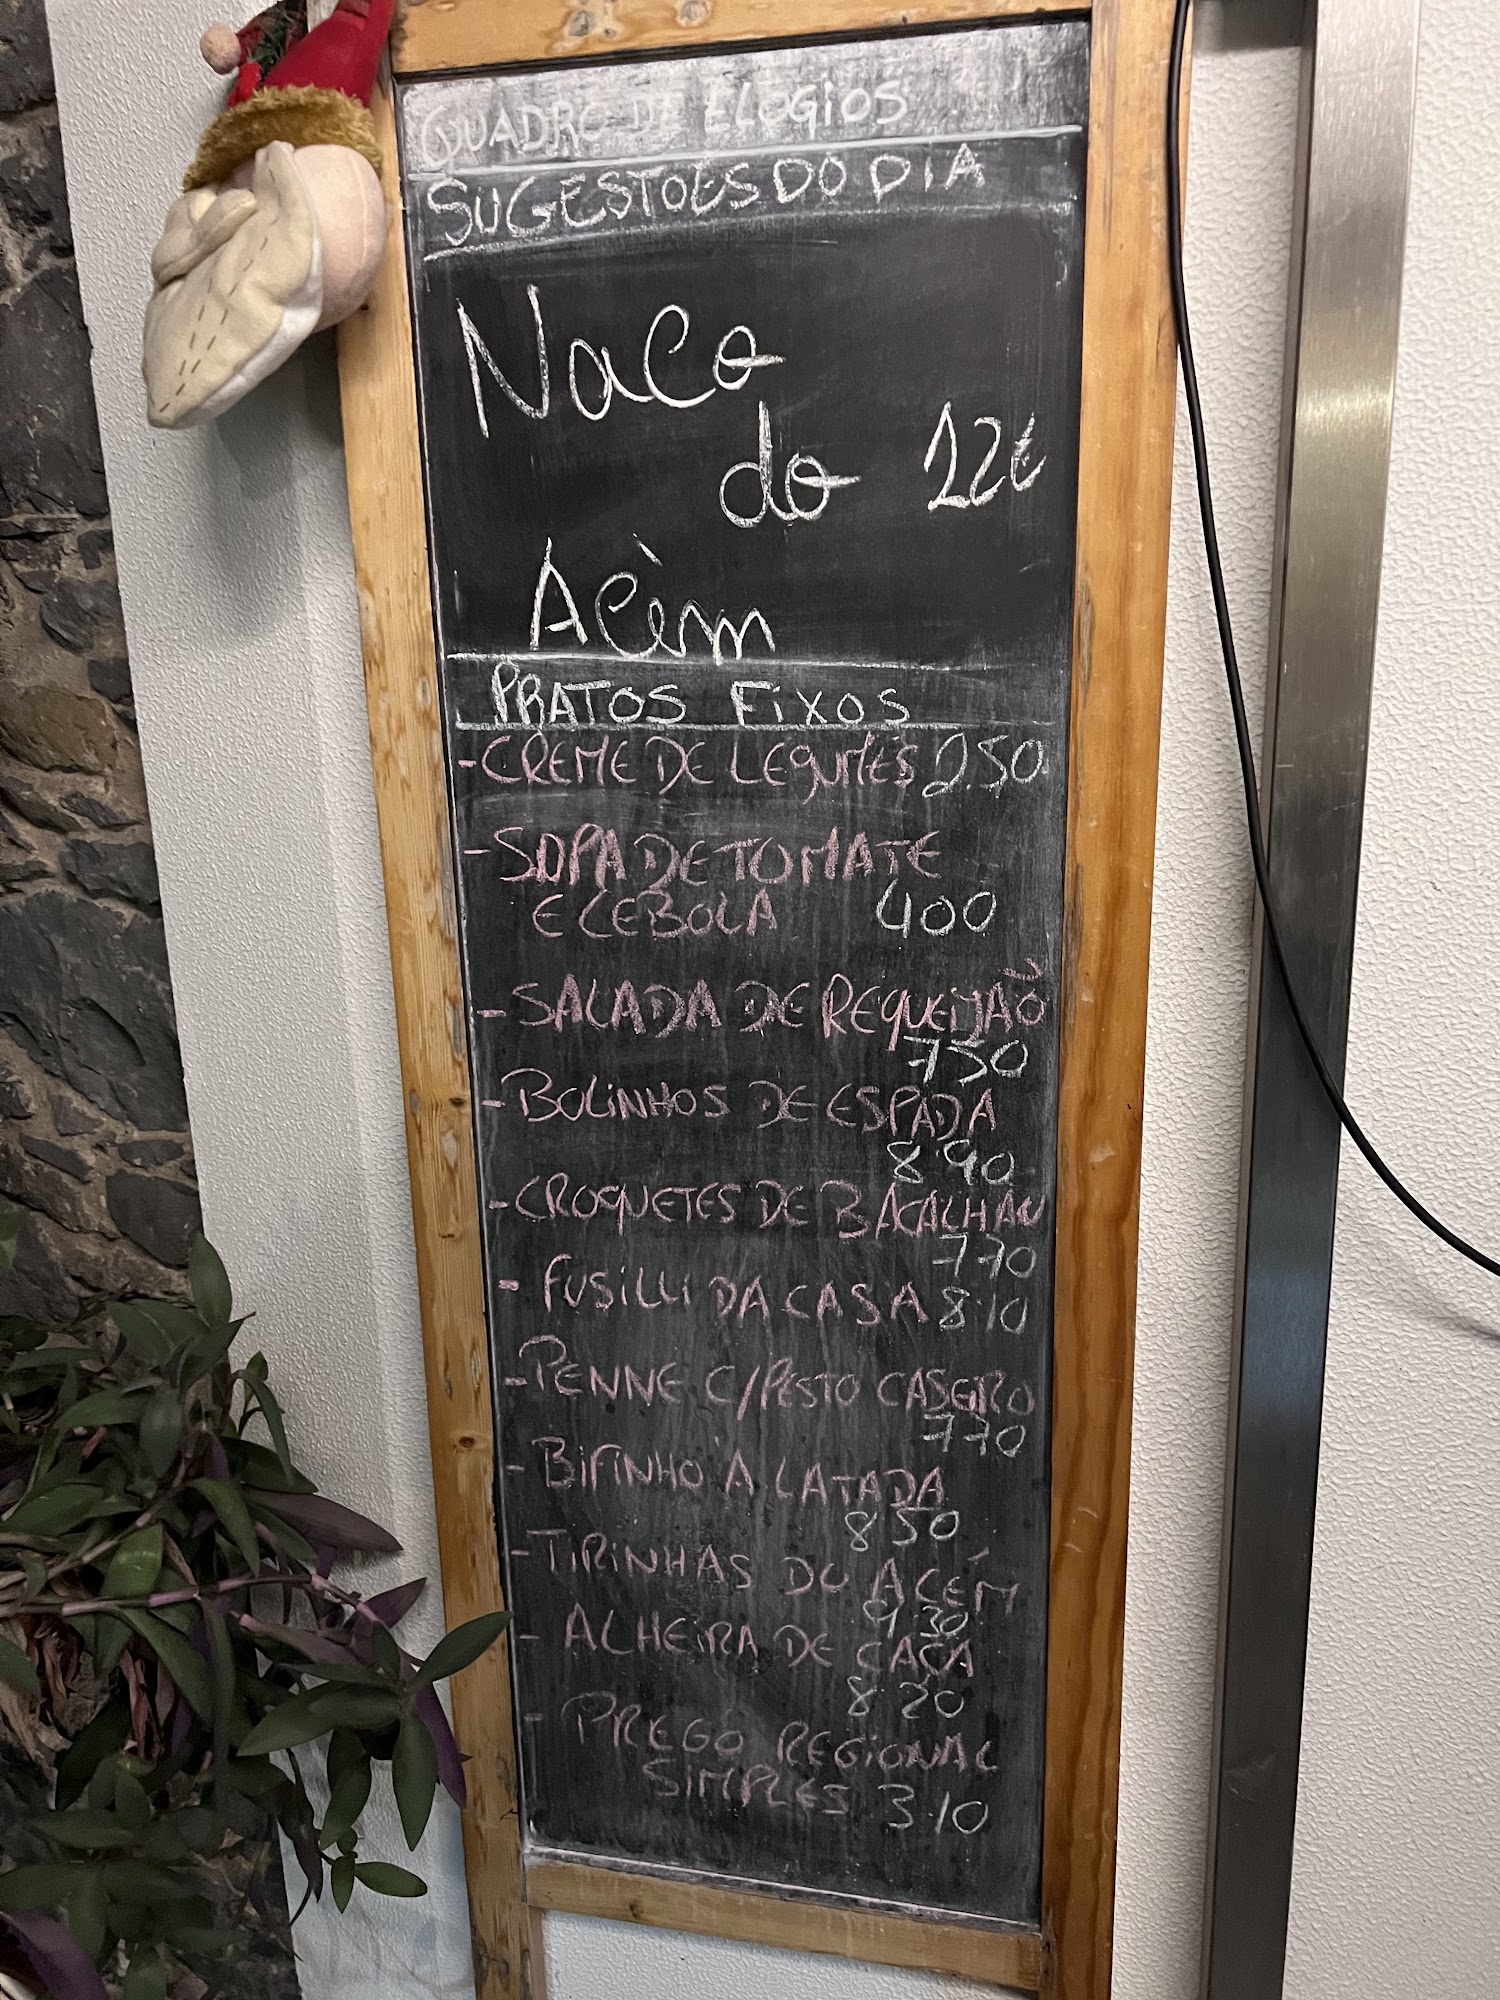 QUADRO DE ELOGIOS
SUGESTOES DO DIA
Naco
do 12€
Acèm
PRATOS FIXOS
- CREME DE LEGUMES 2.50
- SOPA DE TOMATE
E CEBOLA 400
- SALADA DE REQUEIJÃO
750
- BOLINHOS DE ESPADA
890
- CROQUETES DE BACALHAU
770
- FUSILLI DA CASA 8.10
- PENNE C/PESTO CASEIRO
770
- BIFINHO À LATADA
850
- TIRINHAS DO ACÉM
930
- ALHEIRA DE CAÇA
8.20
- PREGO REGIONAL
SIMPLES 3.10